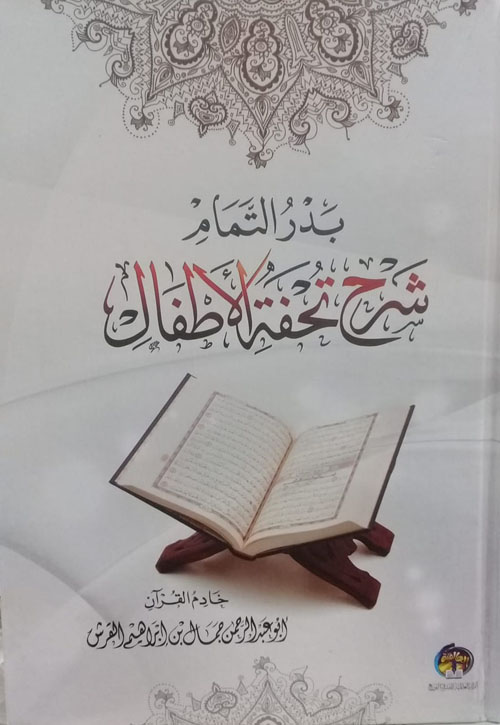 بَدْرُ التَّمَامِ
شَرْحُ تُحْفَةِ الأَطْفَالِ
خَادِمُ القُرْآنِ
أبو عبد الرحمن جمال بن إبراهيم القرش